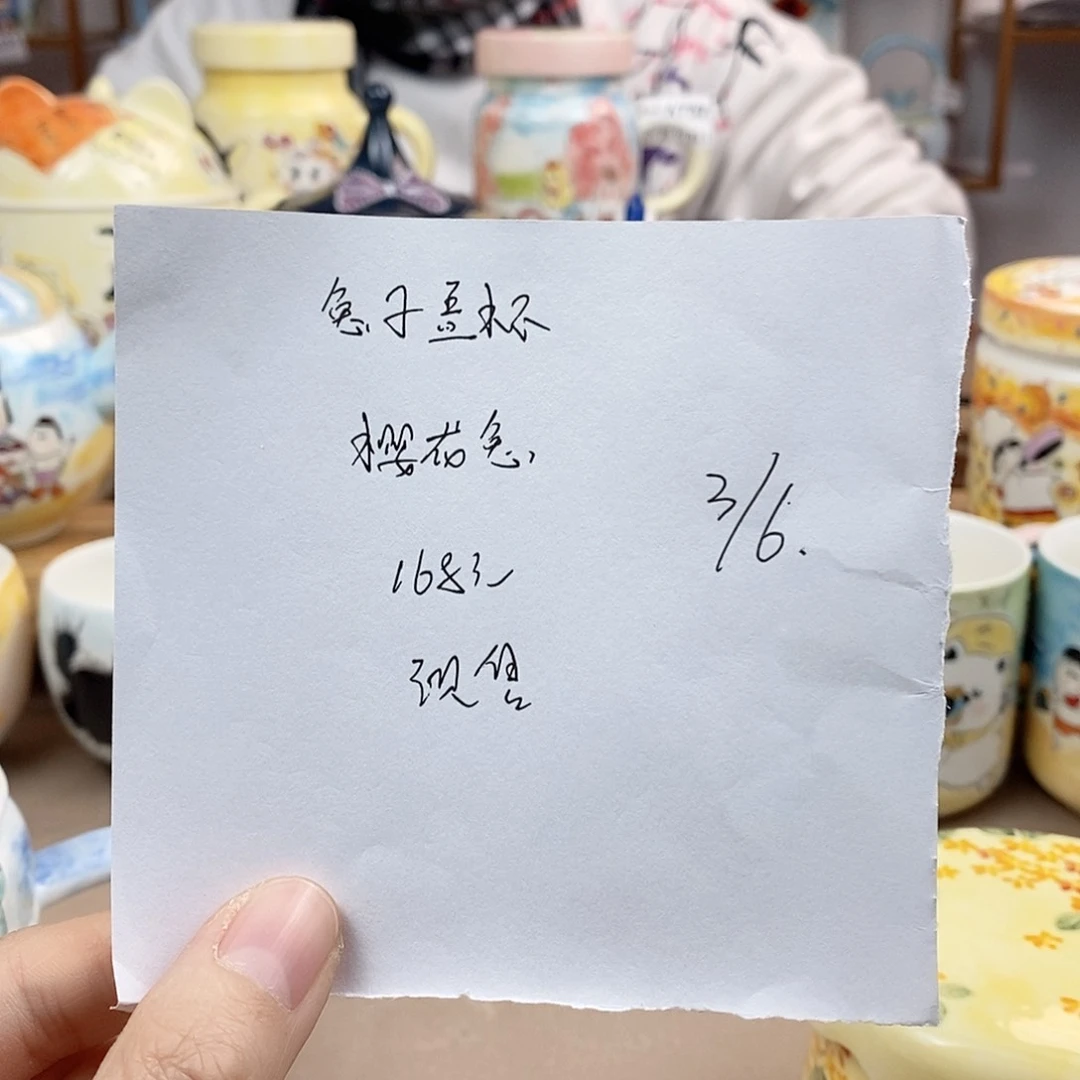 兔子豆杯
樱花兔
168元
现售
3/6.